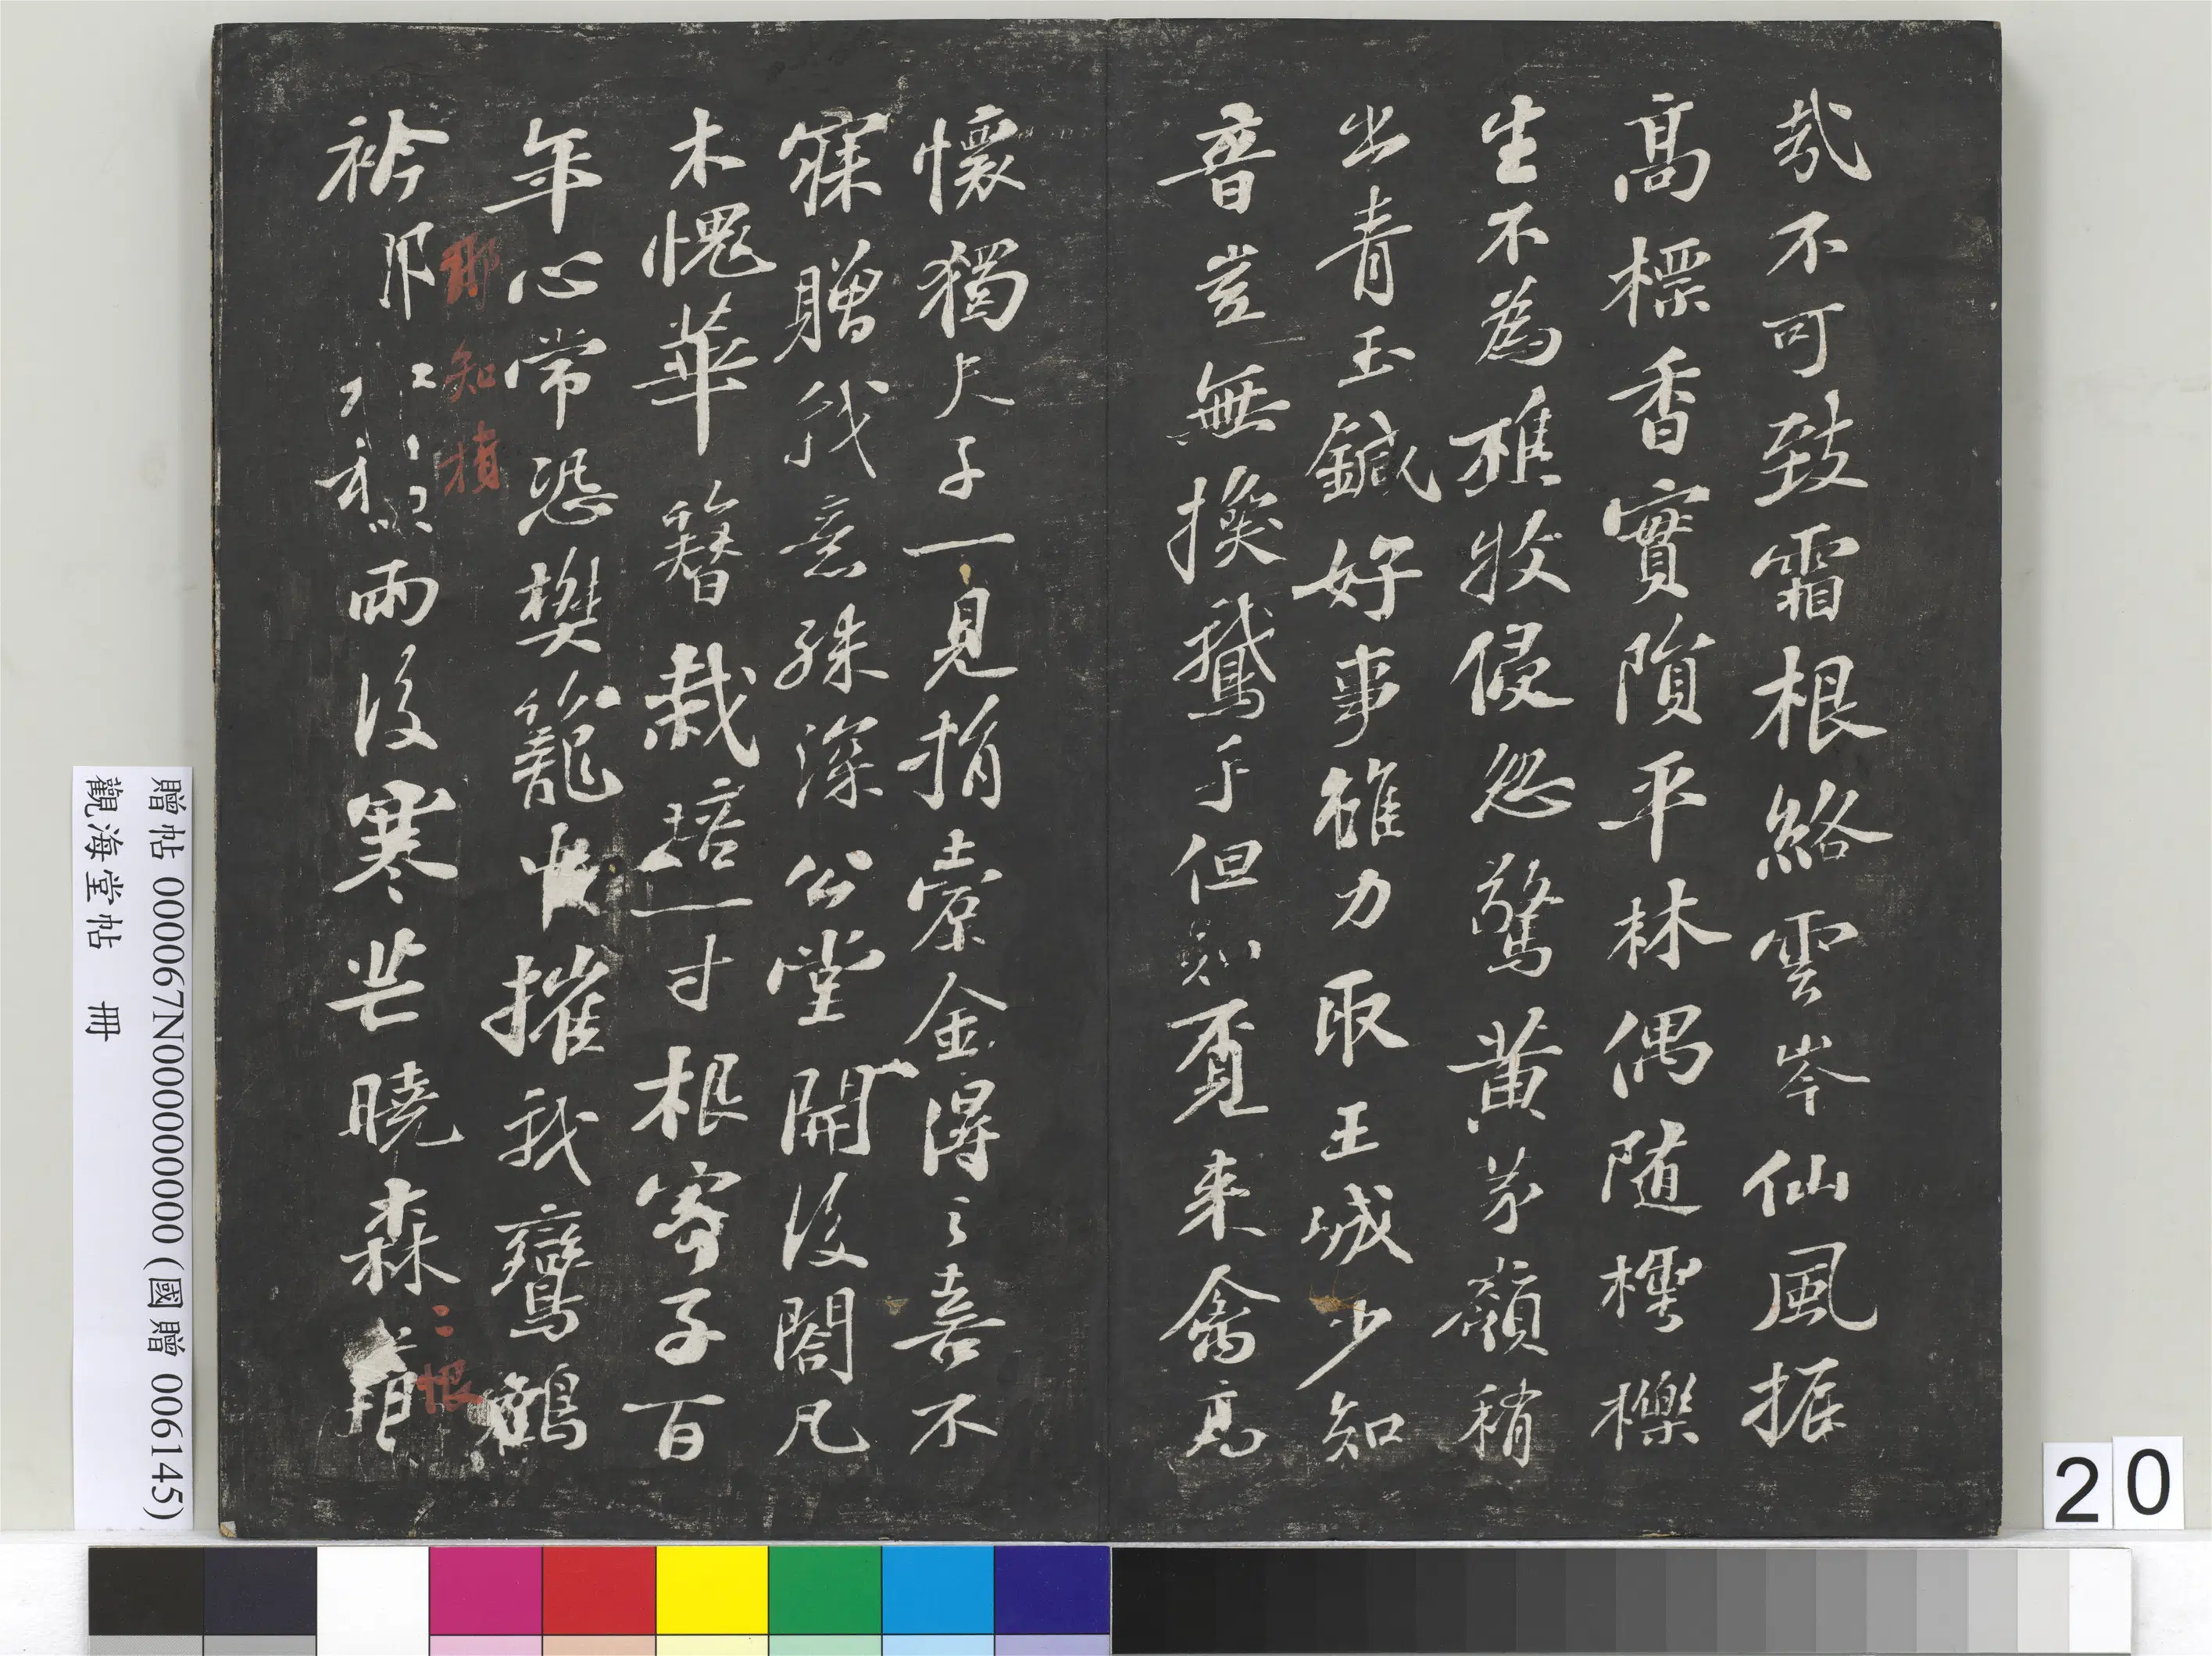 哉不可致霜根絡雲岑仙風振
高標香實隕平林偶随樗櫟
生不為樵牧侵忽驚黃茅嶺稍
出青玉鍼好事雖力取王城少知
音豈無換鵞手但知覔来禽高
懷獨夫子一見捐橐金得之喜不
寐贈我意殊深公堂開後閤凡
木愧華簪栽培一寸根寄子百
年心常恐樊籠中摧我鸞鶴
那知積
衿那雨後寒芒曉森
恨
贈帖 000067N000000000 (國贈 006145)
觀海堂帖 冊
20